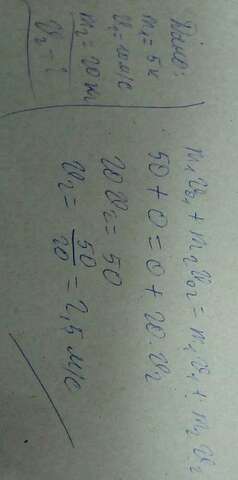 Дано:
m₁ = 5 кг
m₂ = 20 кг
m₁ v₀₁ + m₂ v₀₂ = m₁ v₁ + m₂ v₂
50 + 0 = 0 + 20 · v₂
20 v₂ = 50
v₂ = 50/20 = 2,5 м/с